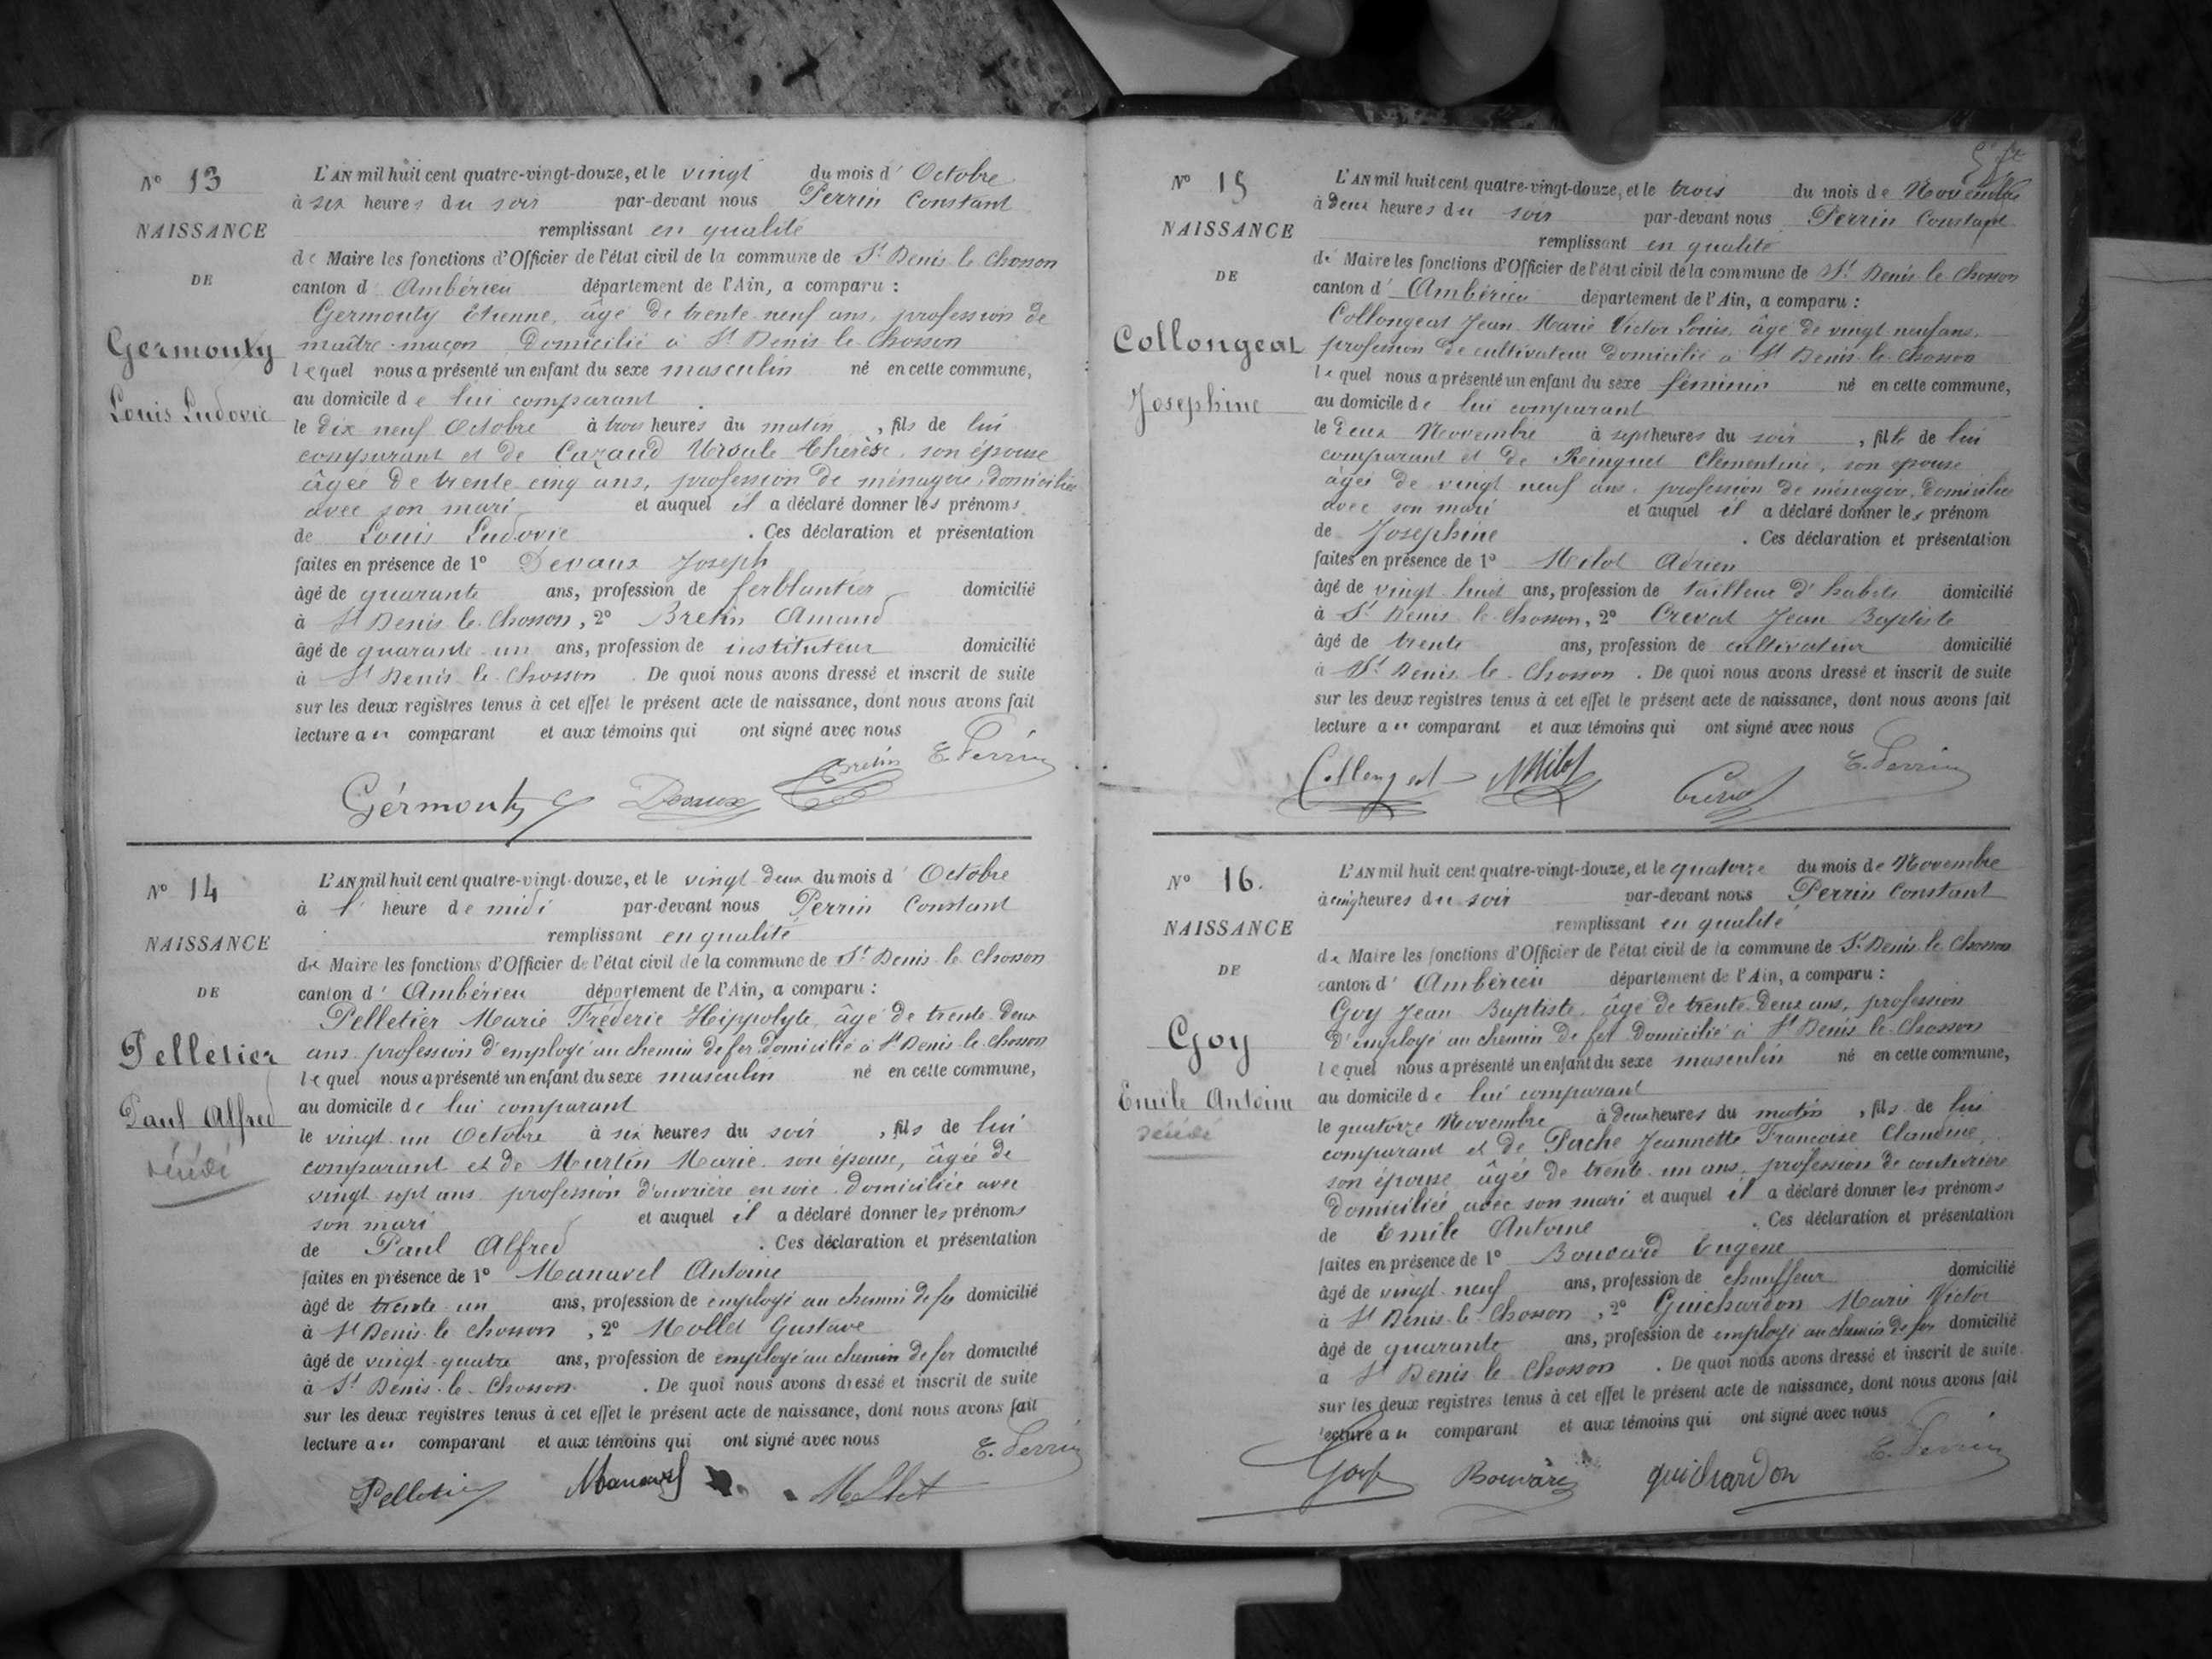 N° 13
NAISSANCE
DE
Germouty
Louis Ludovic
L'AN mil huit cent quatre-vingt-douze, et le vingt du mois d' Octobre
à six heures du soir par-devant nous Perrin Constant
remplissant en qualité
de Maire les fonctions d'Officier de l'état civil de la commune de St Denis le Chosson
canton d' Ambérieu département de l'Ain, a comparu :
Germouty Etienne, âgé de trente neuf ans, profession de
maître-maçon domicilié à St Denis le Chosson
lequel nous a présenté un enfant du sexe masculin né en cette commune,
au domicile de lui comparant
le dix neuf Octobre à trois heures du matin, fils de lui
comparant et de Cazaud Ursule Thérèse, son épouse
âgée de trente cinq ans, profession de ménagère, domiciliée
avec son mari et auquel il a déclaré donner les prénoms
de Louis Ludovic. Ces déclaration et présentation
faites en présence de 1° Devaux Joseph
âgé de quarante ans, profession de ferblantier domicilié
à St Denis le Chosson, 2° Bretin Amand
âgé de quarante un ans, profession de instituteur domicilié
à St Denis le Chosson. De quoi nous avons dressé et inscrit de suite
sur les deux registres tenus à cet effet le présent acte de naissance, dont nous avons fait
lecture au comparant et aux témoins qui ont signé avec nous
Bretin C. Perrin
Germouty Devaux
N° 14
NAISSANCE
DE
Pelletier
Paul Alfred
L'AN mil huit cent quatre-vingt-douze, et le vingt deux du mois d' Octobre
à l' heure de midi par-devant nous Perrin Constant
remplissant en qualité
de Maire les fonctions d'Officier de l'état civil de la commune de St Denis le Chosson
canton d' Ambérieu département de l'Ain, a comparu :
Pelletier Marie Fréderic Hippolyte, âgé de trente deux
ans profession d'employé au chemin de fer, domicilié à St Denis le Chosson
lequel nous a présenté un enfant du sexe masculin né en cette commune,
au domicile de lui comparant
le vingt un Octobre à six heures du soir, fils de lui
comparant et de Martin Marie son épouse, âgée de
vingt sept ans profession d'ouvrière en soie domiciliée avec
son mari et auquel il a déclaré donner les prénoms
de Paul Alfred. Ces déclaration et présentation
faites en présence de 1° Manavel Antoine
âgé de trente un ans, profession de employé au chemin de fer domicilié
à St Denis le Chosson, 2° Mollet Gustave
âgé de vingt quatre ans, profession de employé au chemin de fer domicilié
à St Denis le Chosson. De quoi nous avons dressé et inscrit de suite
sur les deux registres tenus à cet effet le présent acte de naissance, dont nous avons fait
lecture au comparant et aux témoins qui ont signé avec nous
C. Perrin
Pelletier Manavel Mollet
N° 15
NAISSANCE
DE
Collongeat
Josephine
L'AN mil huit cent quatre-vingt-douze, et le trois du mois de Novembre
à deux heures du soir par-devant nous Perrin Constant
remplissant en qualité
de Maire les fonctions d'Officier de l'état civil de la commune de St Denis le Chosson
canton d' Ambérieu département de l'Ain, a comparu :
Collongeat Jean Marie Victor Louis, âgé de vingt neuf ans,
profession de cultivateur domicilié à St Denis le Chosson
lequel nous a présenté un enfant du sexe féminin né en cette commune,
au domicile de lui comparant
le deux Novembre à sept heures du soir, fille de lui
comparant et de Reinguet Clementine, son épouse
âgée de vingt neuf ans, profession de ménagère, domiciliée
avec son mari et auquel il a déclaré donner les prénom
de Josephine. Ces déclaration et présentation
faites en présence de 1° Milot Adrien
âgé de vingt huit ans, profession de tailleur d'habits domicilié
à St Denis le Chosson, 2° Crevat Jean Baptiste
âgé de trente ans, profession de cultivateur domicilié
à St Denis le Chosson. De quoi nous avons dressé et inscrit de suite
sur les deux registres tenus à cet effet le présent acte de naissance, dont nous avons fait
lecture au comparant et aux témoins qui ont signé avec nous
Collongeat AMilot Crevat C. Perrin
N° 16.
NAISSANCE
DE
Goy
Emile Antoine
L'AN mil huit cent quatre-vingt-douze, et le quatorze du mois de Novembre
à cinq heures du soir par-devant nous Perrin Constant
remplissant en qualité
de Maire les fonctions d'Officier de l'état civil de la commune de St Denis le Chosson
canton d' Ambérieu département de l'Ain, a comparu :
Goy Jean Baptiste, âgé de trente deux ans, profession
d'employé au chemin de fer domicilié à St Denis le Chosson
lequel nous a présenté un enfant du sexe masculin né en cette commune,
au domicile de lui comparant
le quatorze Novembre à deux heures du matin, fils de lui
comparant et de Pache Jeannette Françoise Claudine,
son épouse âgée de trente un ans, profession de couturière
domiciliée avec son mari et auquel il a déclaré donner les prénoms
de Emile Antoine. Ces déclaration et présentation
faites en présence de 1° Bouvard Eugene
âgé de vingt neuf ans, profession de chauffeur domicilié
à St Denis le Chosson, 2° Guichardon Marie Victor
âgé de quarante ans, profession de employé au chemin de fer domicilié
à St Denis le Chosson. De quoi nous avons dressé et inscrit de suite
sur les deux registres tenus à cet effet le présent acte de naissance, dont nous avons fait
lecture au comparant et aux témoins qui ont signé avec nous
C. Perrin
Goy Bouvard guichardon